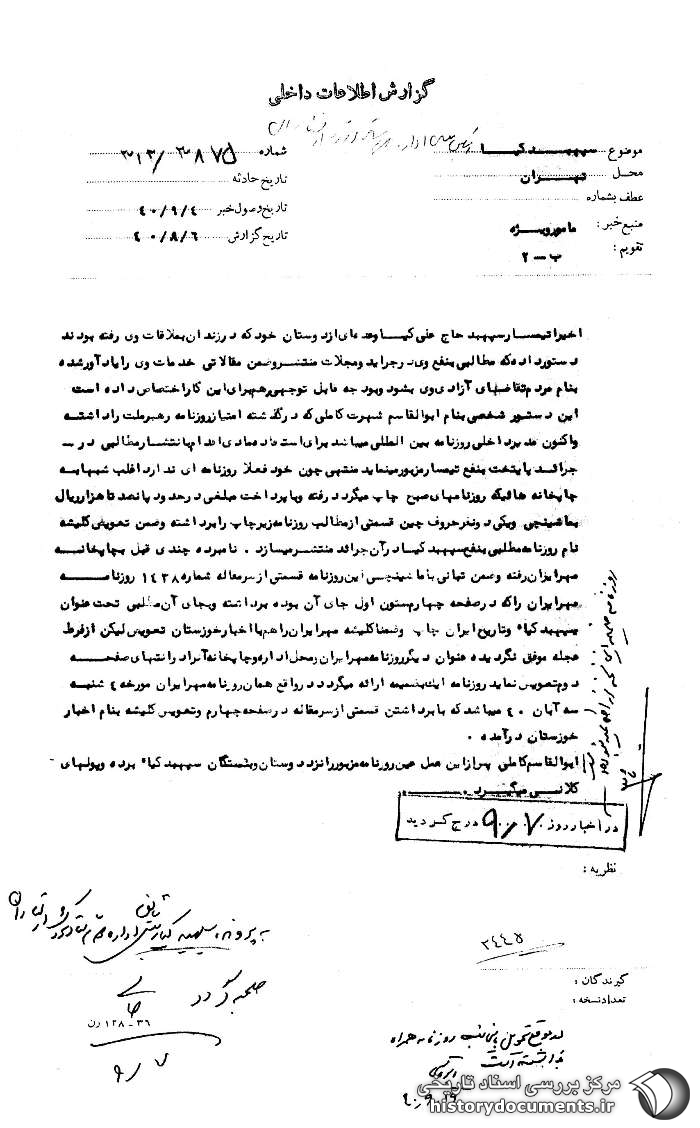 گزارش اطلاعات داخلی
موضوع سپهبد کیا
محل تهران
عطف بشماره
منبع خبر : مامور ویژه
تقویم : ب - ۲
شماره ۳۱۳/۳۸۷۵
تاریخ حادثه
تاریخ وصول خبر ۴۰/۹/۴
تاریخ گزارش ۴۰/۸/۶
اخیرا تیمسار سپهبد حاج علی کیا وعده‌ای از دوستان خود که در زندان بملاقات وی رفته بودند
دستور داده که مطالبی بنفع وی در جراید ومجلات منتشر وضمن مقالاتی خدمات وی را یادآور شده
بنام مردم تقاضای آزادی وی بشود وبودجه قابل توجهی هم برای این کار اختصاص داده است
این دستور شخصی بنام ابوالقاسم شهرت کاملی که درگذشته امتیاز روزنامه رهبر ملت را داشته
واکنون مدیر داخلی روزنامه بین المللی میباشد برای استفاده مادی اقدام بانتشار مطالبی در
جرائد پایتخت بنفع تیمسار مزبور مینماید منتهی چون خود فعلا روزنامه ای ندارد اغلب شبها به
چاپخانه هائیکه روزنامهای صبح چاپ میگردد رفته وبا پرداخت مبلغی در حدود پانصد تا هزار ریال
بماشینچی ویکی دونفر حروف چین قسمتی از مطالب روزنامه زیر چاپ را برداشته وضمن تعویض کلیشه
نام روزنامه مطلبی بنفع سپهبد کیا در آن جرائد منتشر میسازد . نامبرده چندی قبل بچاپخانه
مهر ایران رفته وضمن تبانی با ماشینچی این روزنامه قسمتی از سرمقاله شماره ۱۴۳۸ روزنامه
مهر ایران راکه در صفحه چهارم ستون اول جای آن بوده برداشته وبجای آن مطلبی تحت عنوان
سپهبد کیا وتاریخ ایران چاپ وضمنا کلیشه مهر ایران را هم با اخبار خوزستان تعویض لیکن از فرط
عجله موفق نگردیده عنوان دیگر روزنامه مهر ایران ومحل اداره وچاپخانه آنرا در انتهای صفحه
دوم تعویض نماید روزنامه اینک بضمیمه ارائه میگردد در واقع همان روزنامه مهر ایران مورخه ۴ شنبه
سه آبان ۴۰ میباشد که با برداشتن قسمتی از سرمقاله در صفحه چهارم وتعویض کلیشه بنام اخبار
خوزستان درآمده .
ابوالقاسم کاملی پس از این عمل عین روزنامه مزبور را نزد دوستان وبستگان سپهبد کیا برده وپولهای
کلانی میگیرد .
در اخبار روز ۹/۷ درج گردید
نظریه :
به پرونده سپهبد کیا
۳۴۴۵
گیرندگان :
تعدادنسخه :
۳۶-۱۲۸ رن
۹/۷
روزنامه همراه
نداشته است
۴۰/۹/۱۶
مرکز بررسی اسناد تاریخی
historydocuments.ir